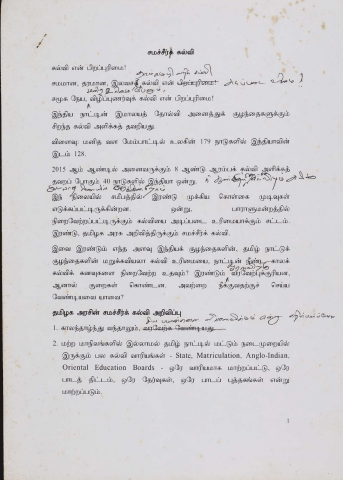 சமச்சீர்க் கல்வி
கல்வி என் பிறப்புரிமை!
சமமான, தரமான, இலவசக் கல்வி என் பிறப்புரிமை!
சமூக நேய, விழிப்புணர்வுக் கல்வி என் பிறப்புரிமை!
இந்திய நாட்டின் இமாலயத் தோல்வி அனைத்துக் குழந்தைகளுக்கும்
சிறந்த கல்வி அளிக்கத் தவறியது.
விளைவு: மனித வள மேம்பாட்டில் உலகின் 179 நாடுகளில் இந்தியாவின்
இடம் 128.
2015 ஆம் ஆண்டில் அனைவருக்கும் 8 ஆண்டு ஆரம்பக் கல்வி அளிக்கத்
தவறப் போகும் 40 நாடுகளில் இந்தியா ஒன்று.
இந் நிலையில் சமீபத்தில் இரண்டு முக்கிய கொள்கை முடிவுகள்
எடுக்கப்பட்டிருக்கின்றன. ஒன்று, பாராளுமன்றத்தில்
நிறைவேற்றப்பட்டிருக்கும் கல்வியை அடிப்படை உரிமையாக்கும் சட்டம்.
இரண்டு, தமிழக அரசு அறிவித்திருக்கும் சமச்சீர்க் கல்வி.
இவை இரண்டும் எந்த அளவு இந்தியக் குழந்தைகளின், தமிழ் நாட்டுக்
குழந்தைகளின் மறுக்கவியலா கல்வி உரிமையை, நாட்டின் நீண்ட காலக்
கல்விக் கனவுகளை நிறைவேற்ற உதவும்? இரண்டும் வரவேற்புக்குரியன,
ஆனால் குறைகள் கொண்டன. அவற்றை நீக்குவதற்குச் செய்ய
வேண்டியவை யாவை?
தமிழக அரசின் சமச்சீர்க் கல்வி அறிவிப்பு
1. காலந்தாழ்ந்து வந்தாலும், வரவேற்க வேண்டியது.
2. மற்ற மாநிலங்களில் இல்லாமல் தமிழ் நாட்டில் மட்டும் நடைமுறையில்
இருக்கும் பல கல்வி வாரியங்கள் - State, Matriculation, Anglo-Indian,
Oriental Education Boards - ஒரே வாரியமாக மாற்றப்பட்டு, ஒரே
பாடத் திட்டம், ஒரே தேர்வுகள், ஒரே பாடப் புத்தகங்கள் என்று
மாற்றப்படும்.
1